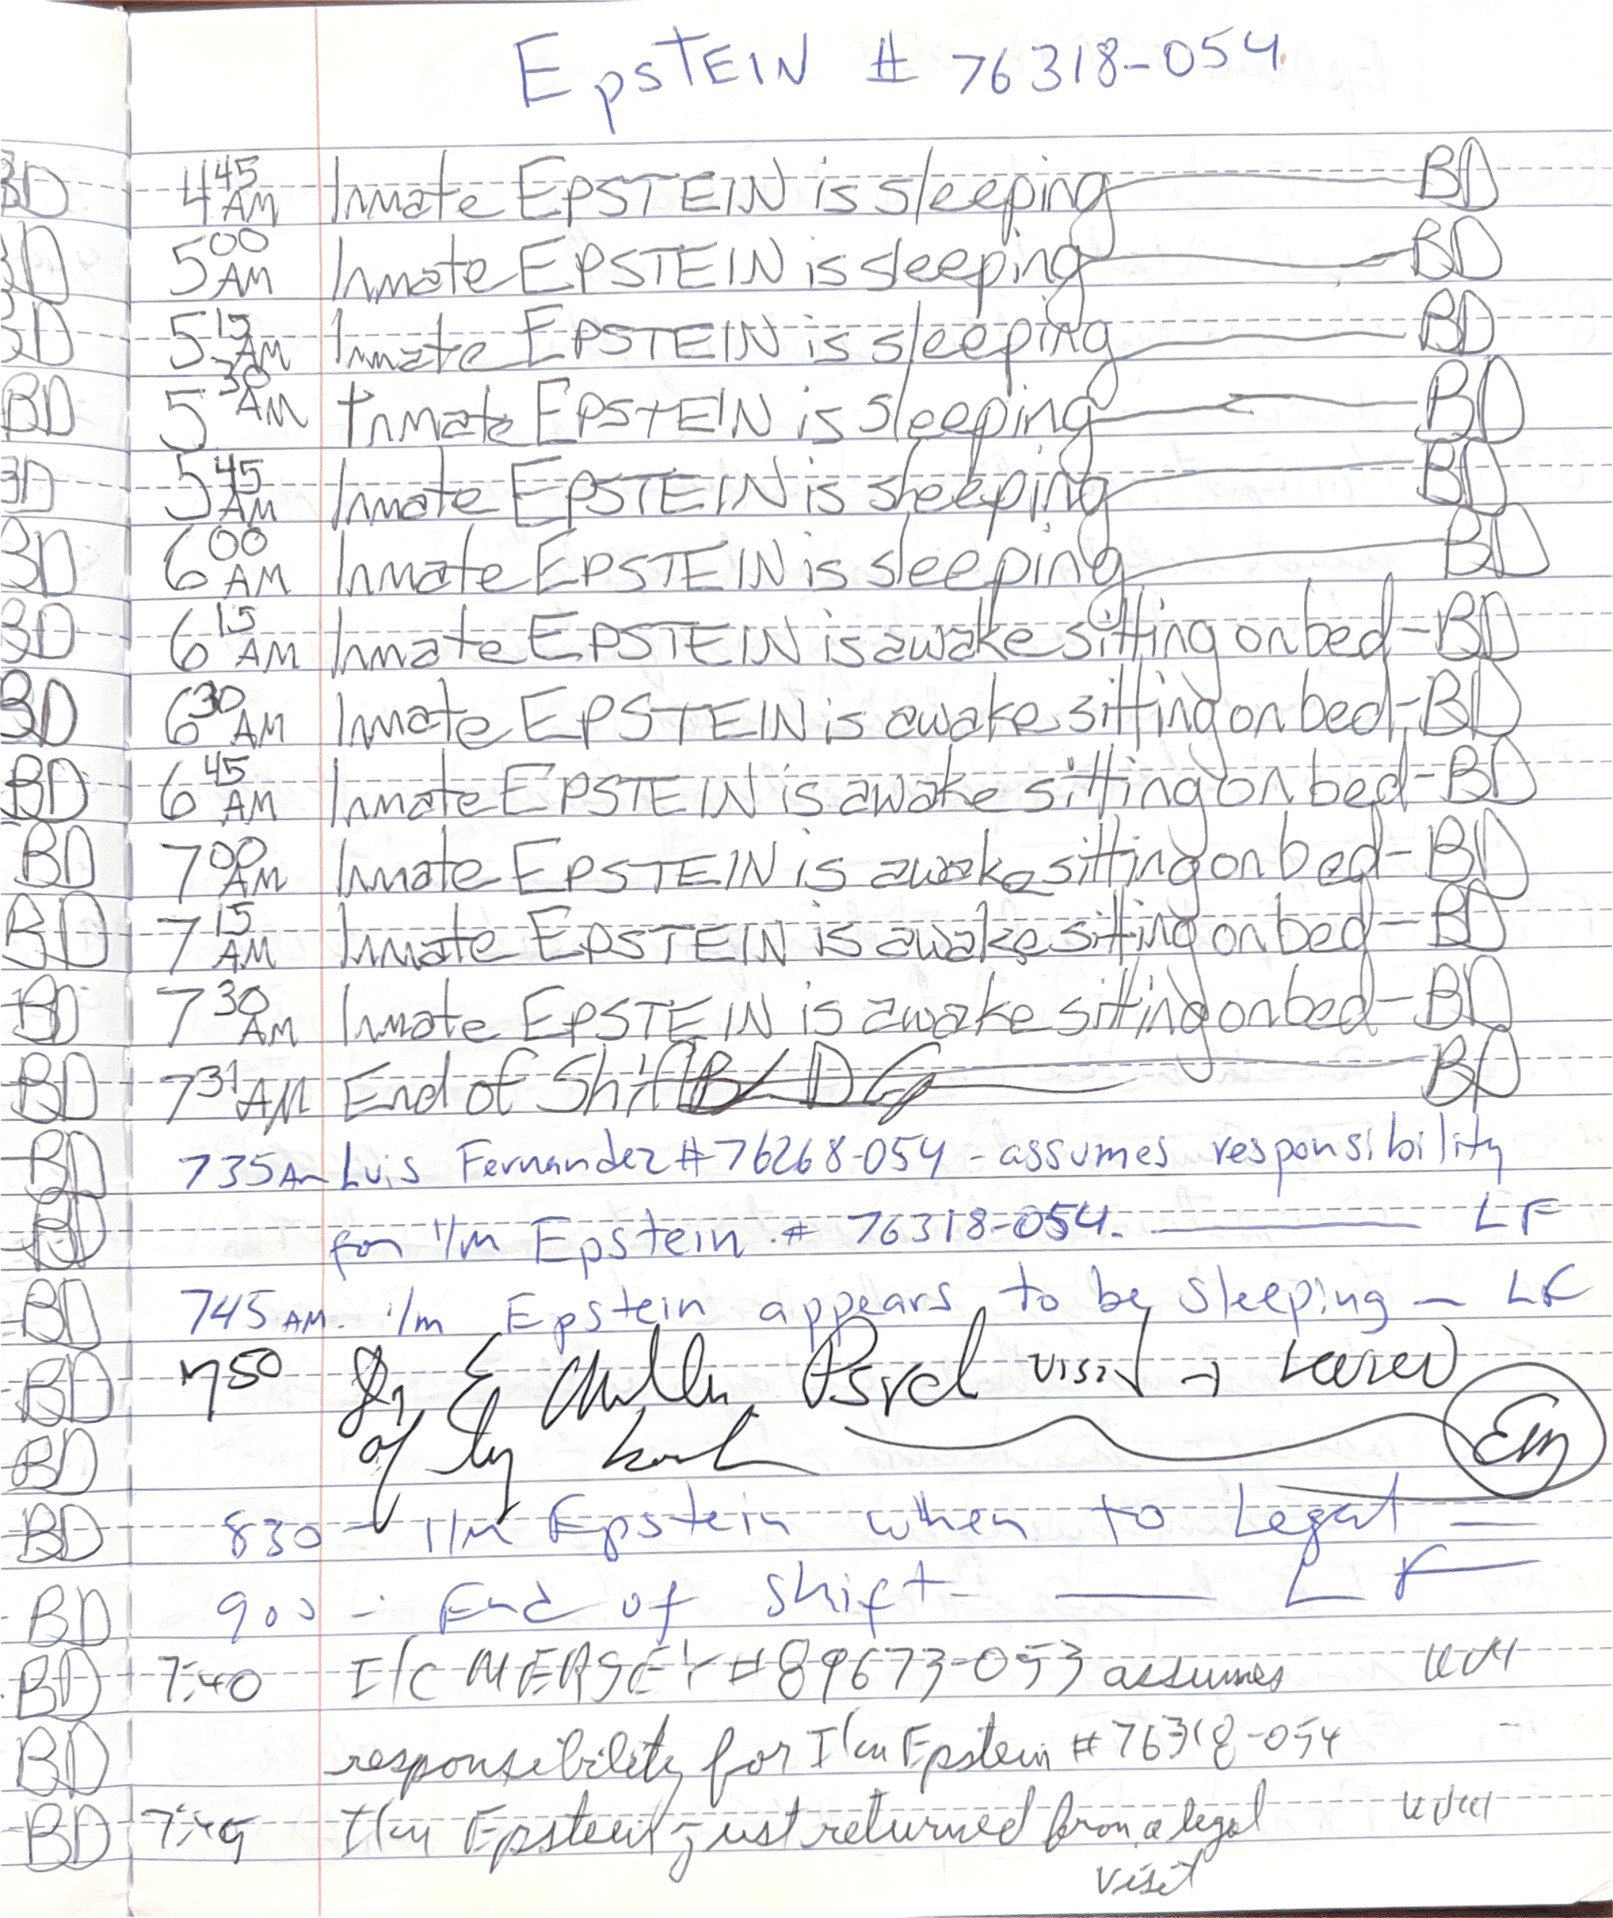 EpsTEIN # 76318-054
BD 4 45 AM Inmate EPSTEIN is sleeping BD
BD 5 00 AM Inmate EPSTEIN is sleeping BD
BD 5 15 AM Inmate EPSTEIN is sleeping BD
BD 5 30 AM Inmate EPSTEIN is sleeping BD
BD 5 45 AM Inmate EPSTEIN is sleeping BD
BD 6 00 AM Inmate EPSTEIN is sleeping BD
BD 6 15 AM Inmate EPSTEIN is awake sitting on bed - BD
BD 6 30 AM Inmate EPSTEIN is awake sitting on bed - BD
BD 6 45 AM Inmate EPSTEIN is awake sitting on bed - BD
BD 7 00 AM Inmate EPSTEIN is awake sitting on bed - BD
BD 7 15 AM Inmate EPSTEIN is awake sitting on bed - BD
BD 7 30 AM Inmate EPSTEIN is awake sitting on bed - BD
BD 7 31 AM End of Shift BD
BD 735 AM Luis Fernandez # 76268-054 - assumes responsibility
BD for I/m Epstein # 76318-054. LF
BD 745 AM. i/m Epstein appears to be sleeping - LF
BD 750 Dr E Psych visit
BD Em
BD 830 - I/m Epstein when to Legal
BD 900 - End of shift - LF
BD 7:40 I/C MERSEY # 89673-053 assumes
BD responsibility for I/m Epstein # 76318-054
BD 7:45 I/m Epstein just returned from a legal
visit